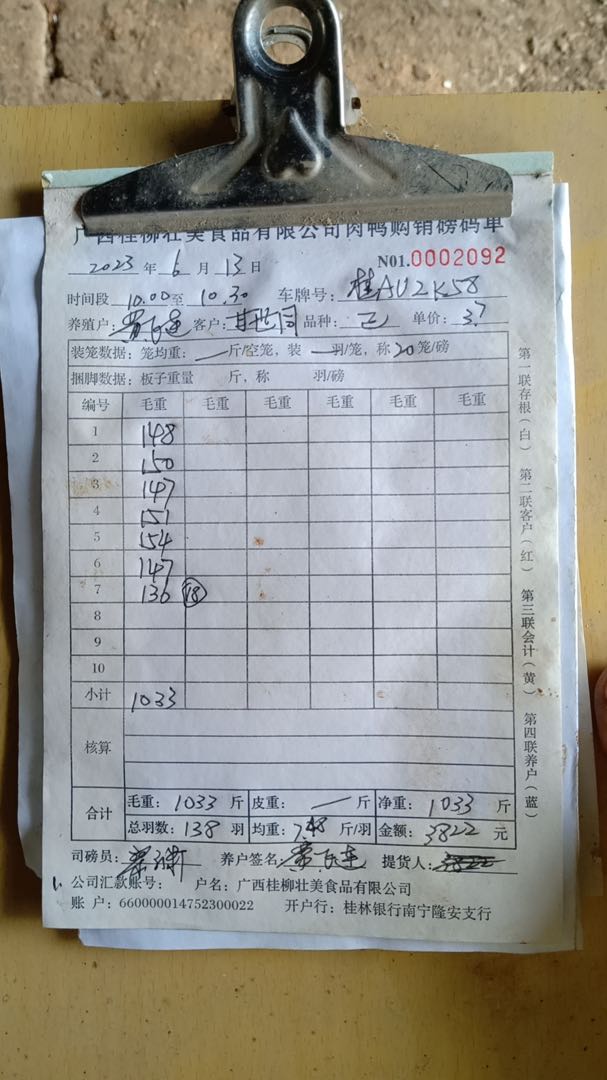 广西桂柳壮美食品有限公司肉鸭购销磅码单
2023 年 6 月 13 日 N01.0002092
时间段 10.00 至 10.30 车牌号: 桂AU2K58
养殖户: 客户: 品种: 单价: 3.7
装笼数据: 笼均重: — 斤/空笼, 装 — 羽/笼, 称 20 笼/磅
捆脚数据: 板子重量 斤, 称 羽/磅
编号 毛重 毛重 毛重 毛重 毛重
1 148
2 150
3 147
4 151
5 154
6 147
7 136 18
8
9
10
小计 1033
核算
合计 毛重: 1033 斤 皮重: — 斤 净重: 1033 斤
总羽数: 138 羽 均重: 7.48 斤/羽 金额: 3822 元
司磅员: 养户签名: 提货人:
公司汇款账号: 户名: 广西桂柳壮美食品有限公司
账 户: 660000014752300022 开户行: 桂林银行南宁隆安支行
第一联存根(白) 第二联客户(红) 第三联会计(黄) 第四联养户(蓝)